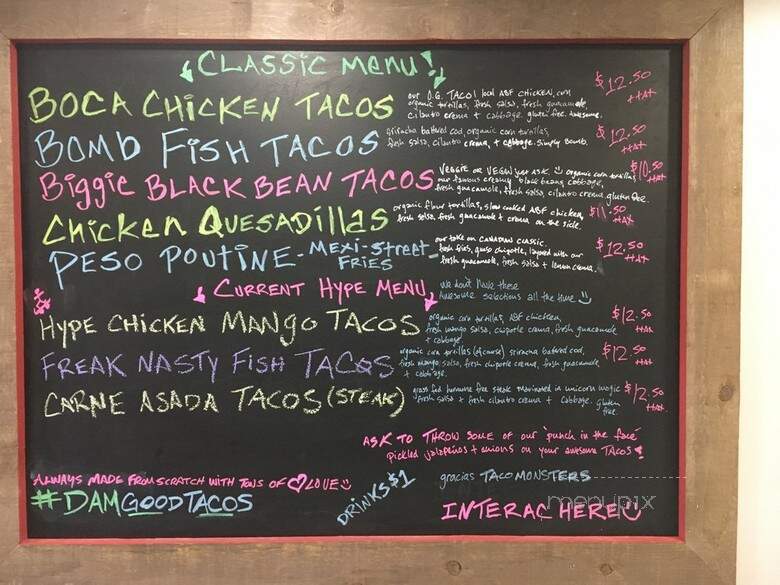 CLASSIC MENU!
BOCA CHICKEN TACOS
our O.G. TACO! local ABF CHICKEN, corn
organic tortillas, fresh salsa, fresh guacamole,
cilantro crema + cabbage. gluten free. Awesome.
$12.50
+TAX
BOMB FISH TACOS
sriracha battered cod, organic corn tortillas,
fresh salsa, cilantro crema, + cabbage. simply Bomb.
$12.50
+TAX
Biggie BLACK BEAN TACOS
VEGGIE OR VEGAN just ASK. organic corn tortillas
our famous creamy black beans, cabbage,
fresh guacamole, fresh salsa, cilantro crema, gluten free.
$10.50
+TAX
Chicken QUESADILLAS
organic flour tortillas, slow cooked ABF chicken,
fresh salsa, fresh guacamole + crema on the side.
$11.50
+TAX
PESO POUTINE - MEXI-Street FRIES -
our take on CANADIAN CLASSIC.
fresh fries, queso chipotle, layered with our
fresh guacamole, fresh salsa + lemon crema.
$12.50
+TAX
CURRENT HYPE MENU
We don't make these
Awesome selections all the time
HYPE CHICKEN MANGO TACOS
organic corn tortillas, ABF chicken
fresh mango salsa, chipotle crema, fresh guacamole
+ cabbage
$12.50
+TAX
FREAK NASTY FISH TACOS
organic corn tortillas (of course) sriracha battered cod,
fresh mango salsa, fresh chipotle crema, fresh guacamole
+ cabbage.
$12.50
+TAX
CARNE ASADA TACOS (STEAK)
grass fed humane free steak marinated in unicorn magic
fresh salsa + fresh cilantro crema + cabbage. gluten free
$12.50
+TAX
ASK TO THROW SOME of our 'punch in the face'
pickled jalapeños + onions on your awesome TACOS!
ALWAYS MADE FROM SCRATCH WITH TONS OF LOVE
#DAMGOODTACOS
DRINKS $1
gracias TACO MONSTERS
INTERAC HERE
menupix